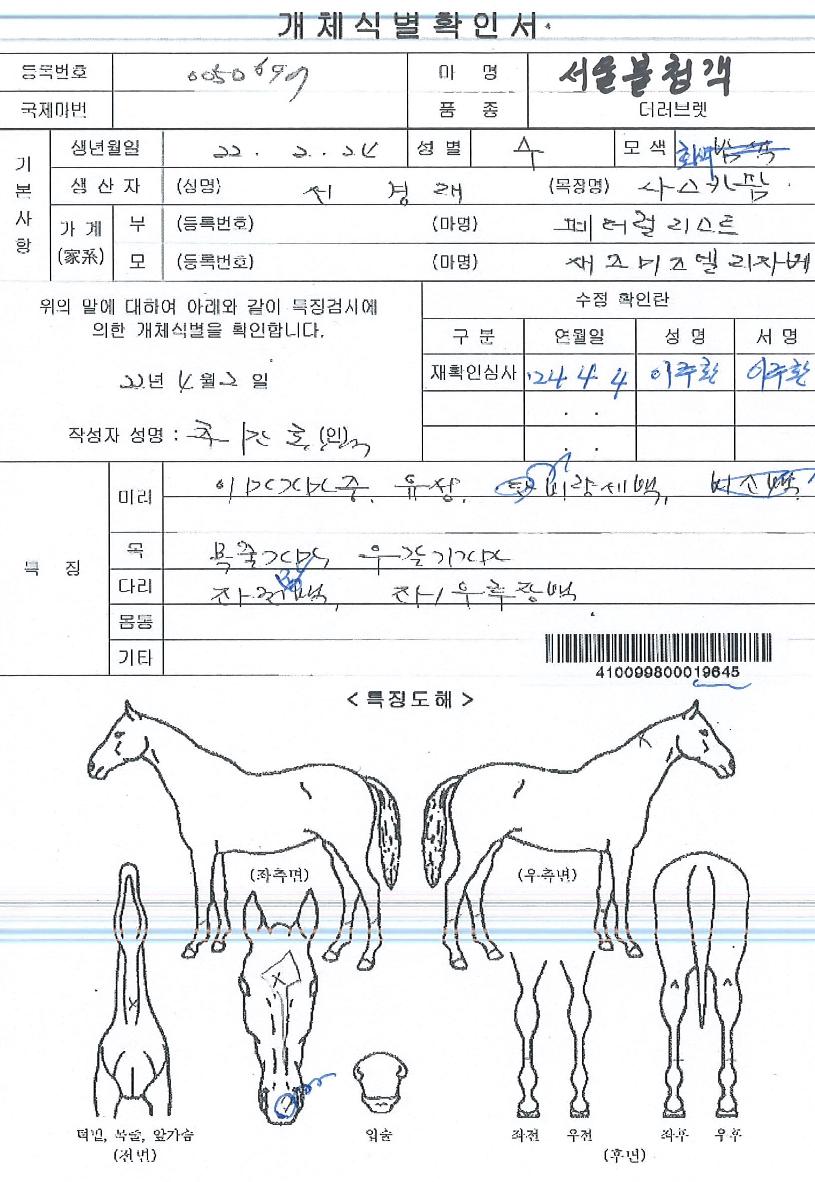 개체식별확인서
등록번호 0050697 마 명 서울불청객
국제마번 품 종 더러브렛
기본사항
생년월일 22. 2. 24 성 별 수 모 색 회색
생 산 자 (성명) 서 경 래 (목장명) 사스카팜
가 계 (家系) 부 (등록번호) (마명) 페더럴리스트
모 (등록번호) (마명) 재즈미즈엘리자베
위의 말에 대하여 아래와 같이 특징검사에
의한 개체식별을 확인합니다.
22년 4월 2일
작성자 성명 : (인)
수정 확인란
구 분 연월일 성 명 서 명
재확인심사 '24. 4. 4 이주환 이주환
특 징
머리 유성, 비량세백,
목 목줄가마
다리 좌/우후장백
몸통
기타
410099800019645
<특징도해>
(좌측면) (우측면)
턱밑, 목줄, 앞가슴
(전면)
입술
좌전 우전 좌후 우후
(후면)